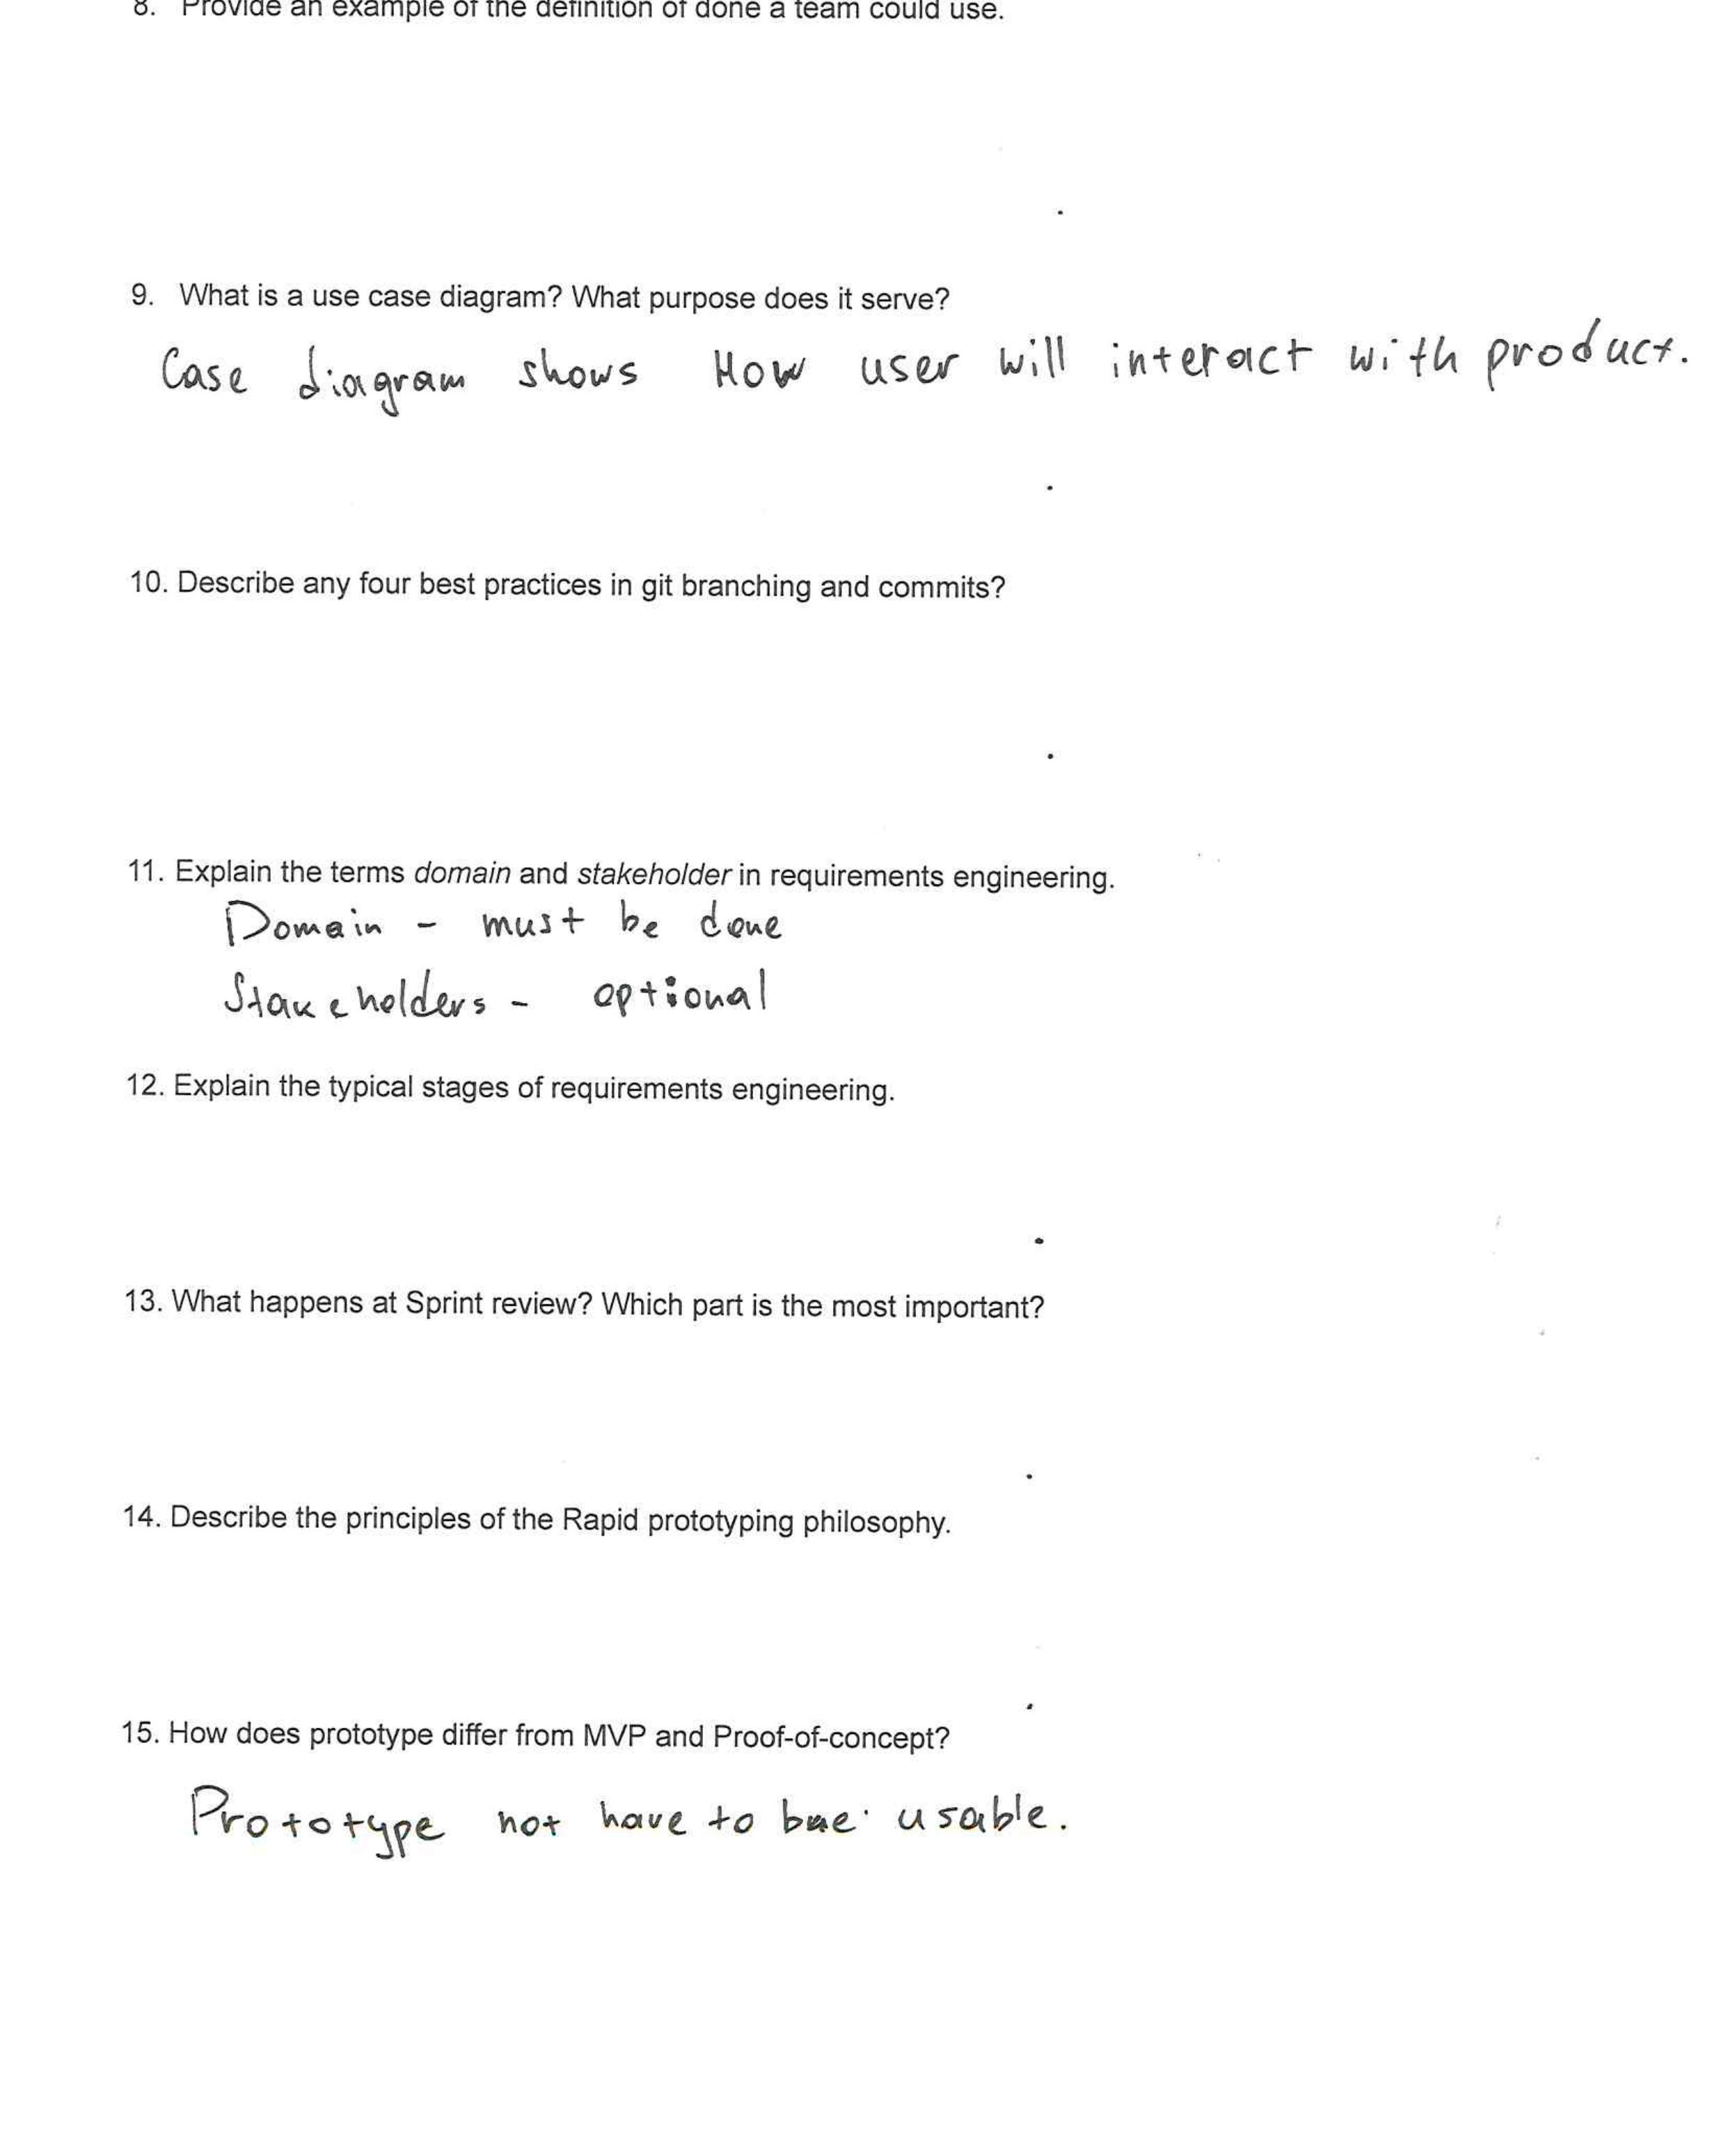 8. Provide an example of the definition of done a team could use.
9. What is a use case diagram? What purpose does it serve?
Case diagram shows How user will interact with product.
10. Describe any four best practices in git branching and commits?
11. Explain the terms domain and stakeholder in requirements engineering.
Domain - must be done
Stakeholders - optional
12. Explain the typical stages of requirements engineering.
13. What happens at Sprint review? Which part is the most important?
14. Describe the principles of the Rapid prototyping philosophy.
15. How does prototype differ from MVP and Proof-of-concept?
Prototype not have to be usable.